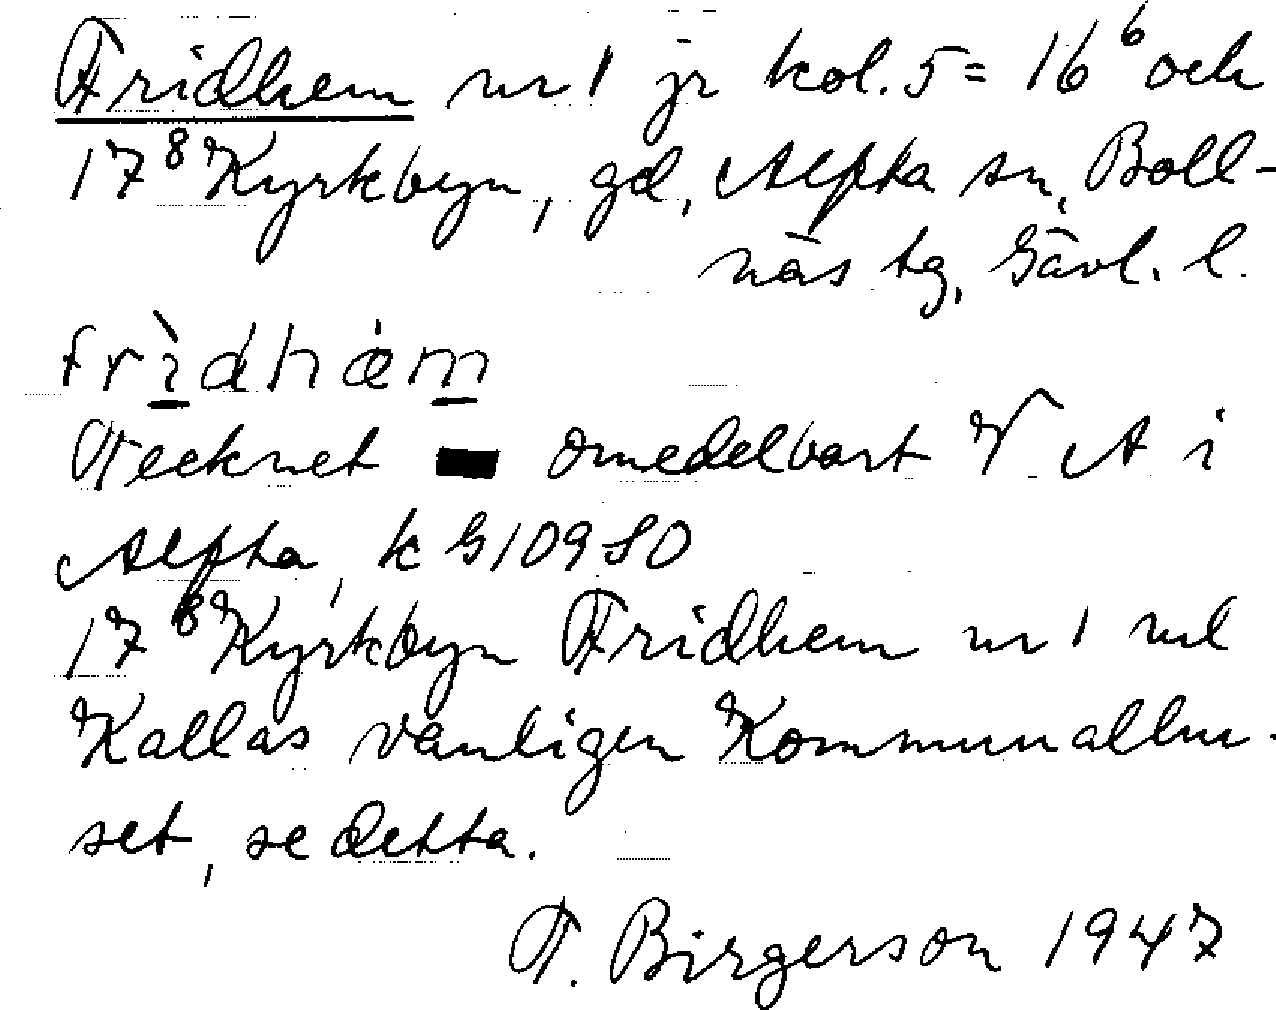 Fridhem nr 1 jr kol. 5 = 16⁶ och
17⁸ Kyrkbyn, gd, Alfta sn, Boll-
näs tg, Gävl. l.
frìdhæm
Tecknet ▬ omedelbart V A i
Alfta, k G10980
17⁸ Kyrkbyn Fridhem nr 1 ml
Kallas vanligen Kommunalhu-
set, se detta.
T. Birgerson 1947